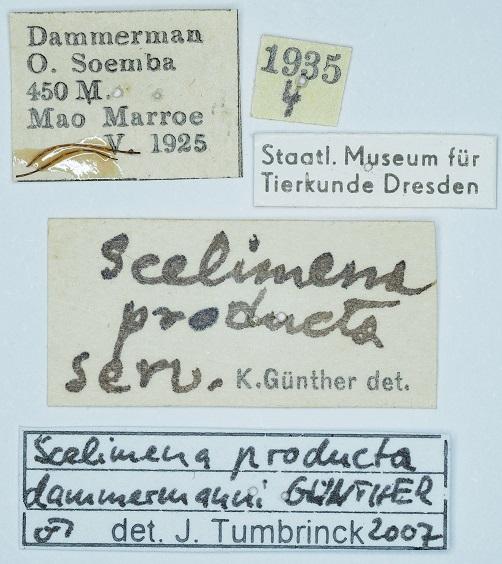 Dammerman
O. Soemba
450 M.
Mao Marroe
V. 1925
1935
4
Staatl. Museum für
Tierkunde Dresden
Scelimena
producta
serv. K.Günther det.
Scelimena producta
dammermanni GÜNTHER
det. J. Tumbrinck 2007